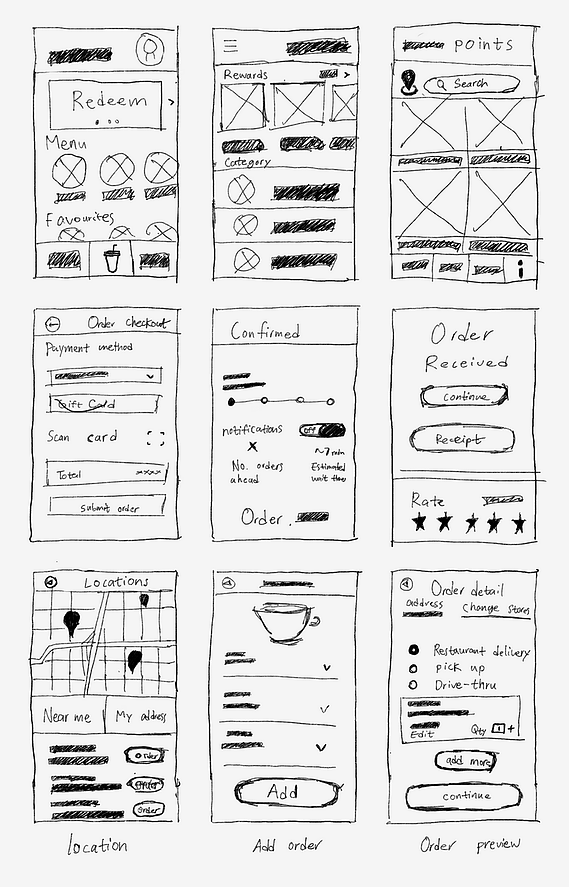 Redeem
Menu
Favourites
Rewards
Category
points
Search
Order checkout
Payment method
Gift Card
Scan card
Total xxxx
submit order
Confirmed
notifications off
X
No. orders
ahead
~7 min
Estimated
wait time
Order
Order
Received
continue
Receipt
Rate
Locations
Near me
My address
order
order
order
location
Add
Add order
Order detail
address
Change Stores
Restaurant delivery
pick up
Drive-thru
Edit
Qty 1 +
add more
continue
Order preview